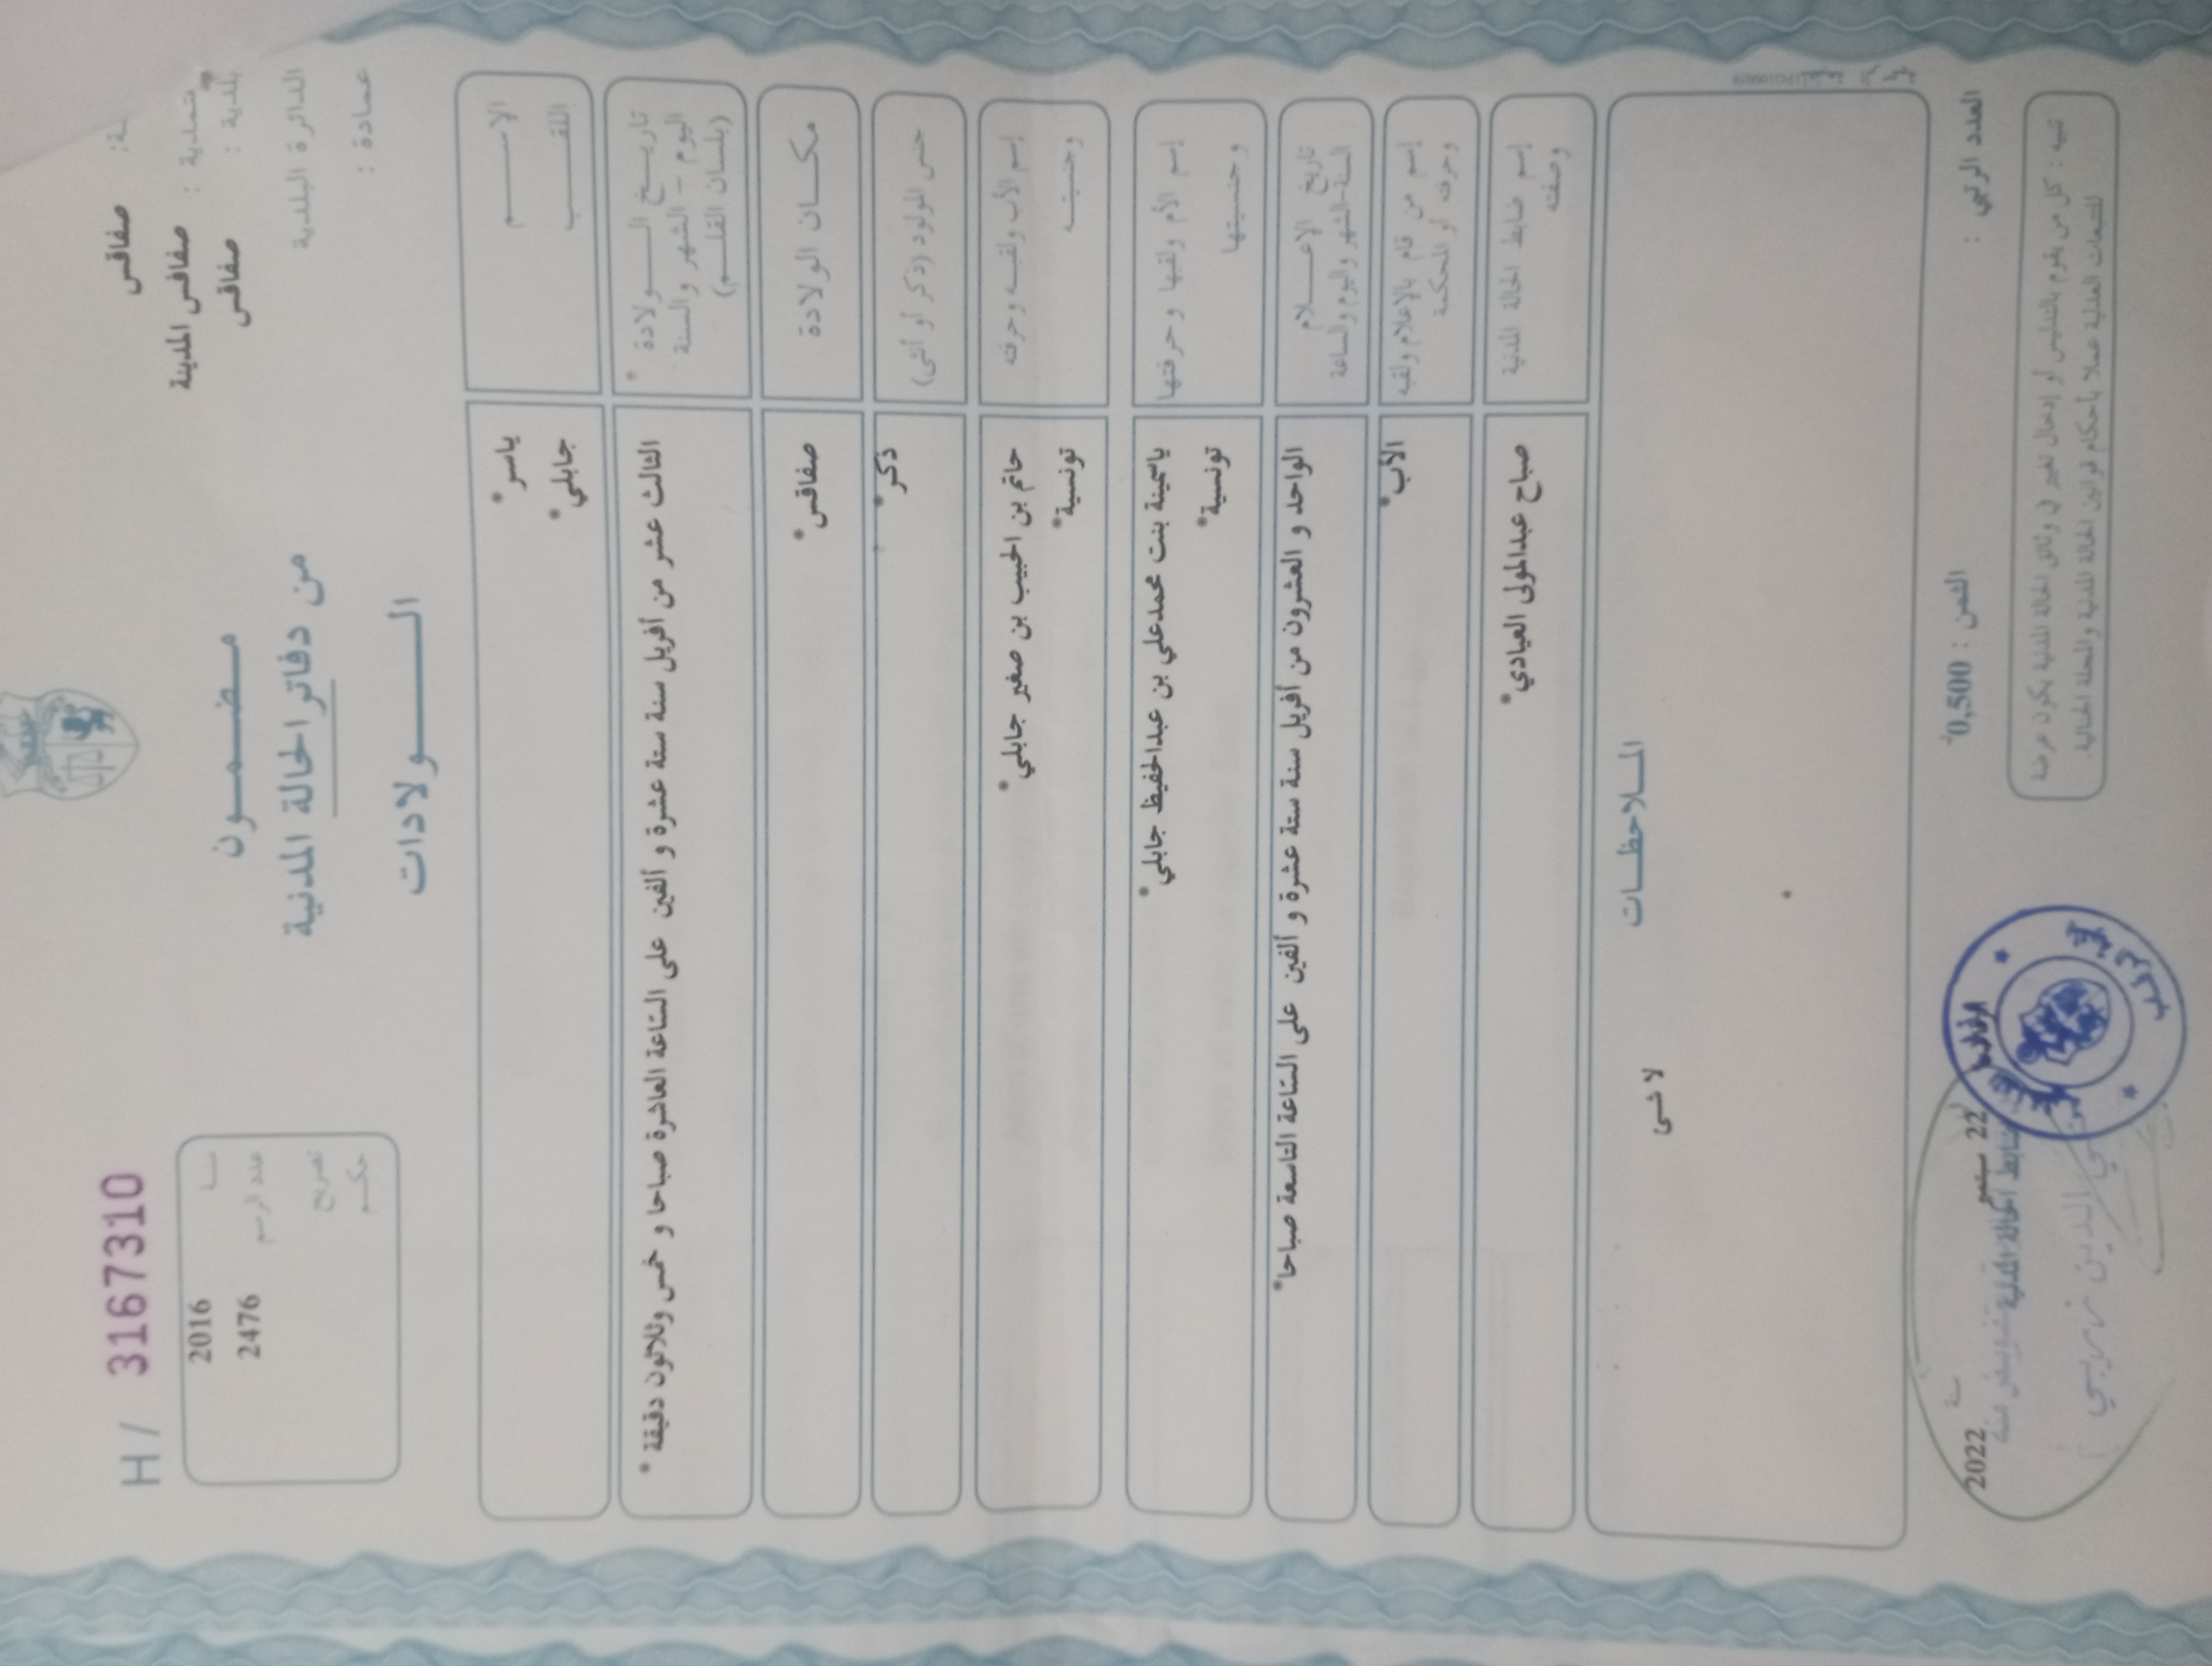 H / 3167310
ـة: صفاقس
معتمدية : صفاقس المدينة
بلدية : صفاقس
الدائرة البلدية
عمادة :
مضمون
من دفاتر الحالة المدنية
الولادات
سنة 2016
عدد الرسم 2476
تصريح
حكم
الاسم ياسر*
اللقب جابلي*
تاريخ الولادة * الثالث عشر من أفريل سنة ستة عشرة و ألفين على الساعة العاشرة صباحا و خمس وثلاثون دقيقة *
اليوم - الشهر والسنة
(بلسان القلم)
مكان الولادة صفاقس*
جنس المولود (ذكر أو أنثى) ذكر*
إسم الأب ولقبه وحرفته حاتم بن الحبيب بن صغير جابلي*
وجنسيته تونسية*
إسم الأم ولقبها وحرفتها ياسمينة بنت محمدعلي بن عبدالحفيظ جابلي*
وجنسيتها تونسية*
تاريخ الإعلام الواحد و العشرون من أفريل سنة ستة عشرة و ألفين على الساعة التاسعة صباحا*
السنة-الشهر واليوم والساعة
إسم من قام بالإعلام ولقبه الأب*
وحرفته أو المحكمة
إسم ضابط الحالة المدنية صباح عبدالمولى العيادي*
وصفته
الملاحظات
لا شىء
العدد الرتبي :
الثمن : 0,500د
22 سبتمبر سنة 2022
ضابط الحالة المدنية بتفويض منه
تنبيه : كل من يقوم بالتدليس أو إدخال تغيير في وثائق الحالة المدنية يكون عرضة
للتتبعات العدلية عملا بأحكام قوانين الحالة المدنية والمجلة الجنائية.